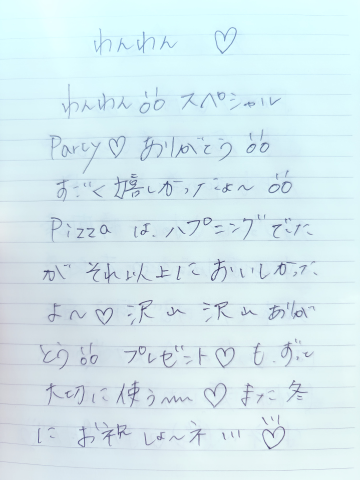 わんわん ♡
わんわん öö スペシャル
Parcy♡ ありがとう öö
すごく嬉しかったよ〜 öö
Pizza は、ハプニングでした
が それ以上に おいしかった
よ〜♡ 沢山 沢山 ありが
とう öö プレゼント♡ も、ずっと
大切に使う♡ また冬
に お祝 しよ〜ネ !!! ♡